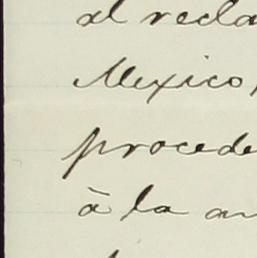 al recla
Mexico,
procede
à la an